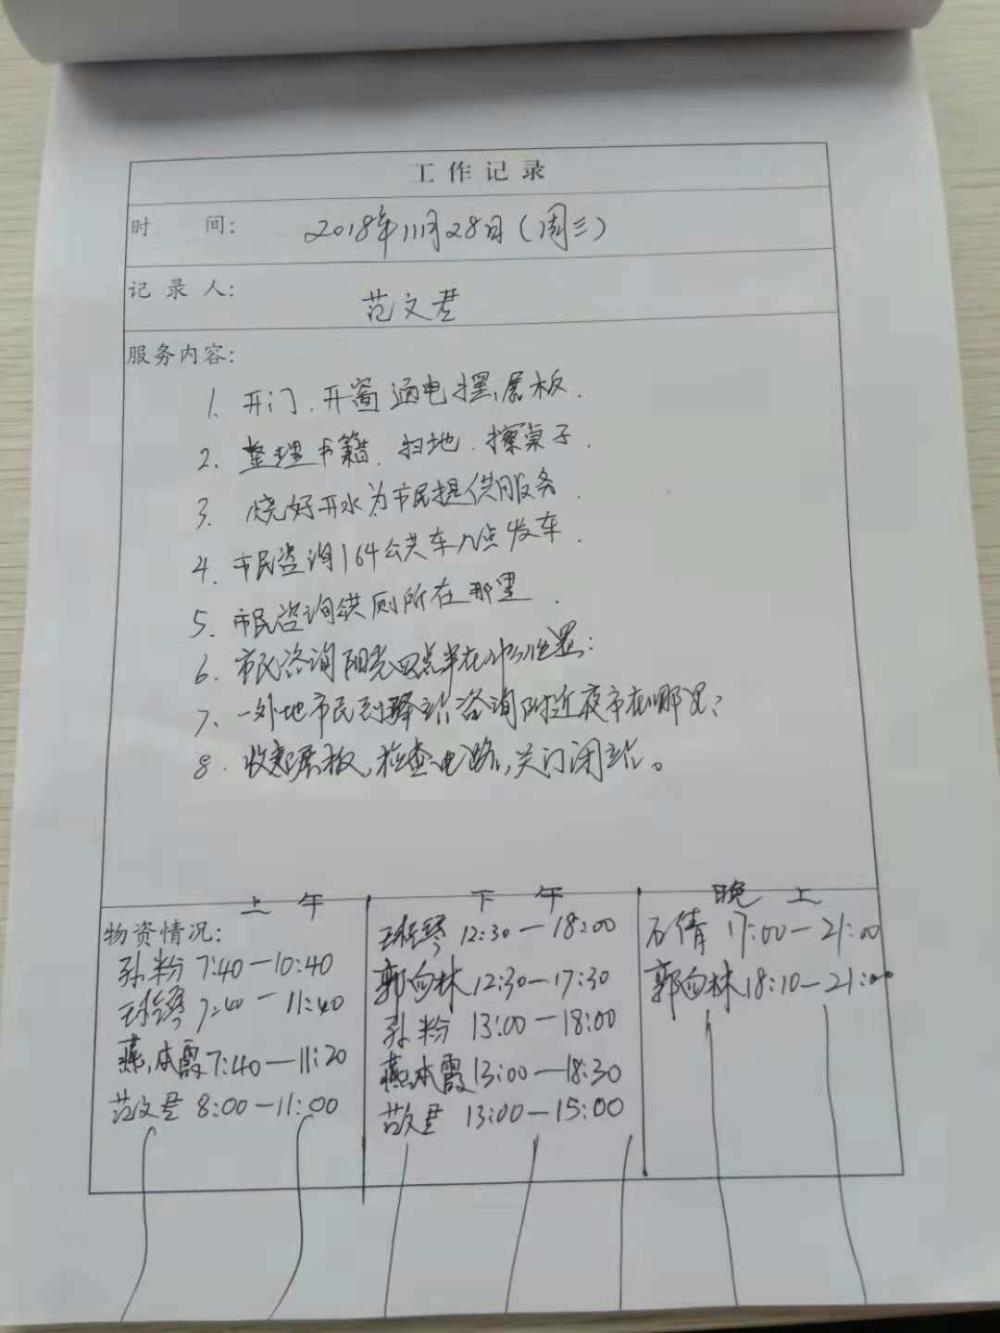 工作记录
时 间: 2018年11月28日(周三)
记录人: 范文君
服务内容:
1. 开门、开窗通电摆展板.
2. 整理书籍、扫地、擦桌子.
3. 烧好开水为市民提供服务.
4. 市民咨询164公共车几点发车.
5. 市民咨询公厕所在那里.
6. 市民咨询阳光四点半在什么位置:
7. 一外地市民到驿站咨询附近夜市在哪里?
8. 收起展板,检查电路,关门闭站。
上午 下午 晚上
物资情况:
孙粉 7:40—10:40
7:40—11:40
燕本霞 7:40—11:20
范文君 8:00—11:00
12:30—18:00
郭向林 12:30—17:30
孙粉 13:00—18:00
燕本霞 13:00—18:30
范文君 13:00—15:00
石倩 17:00—21:00
郭向林 18:10—21:00